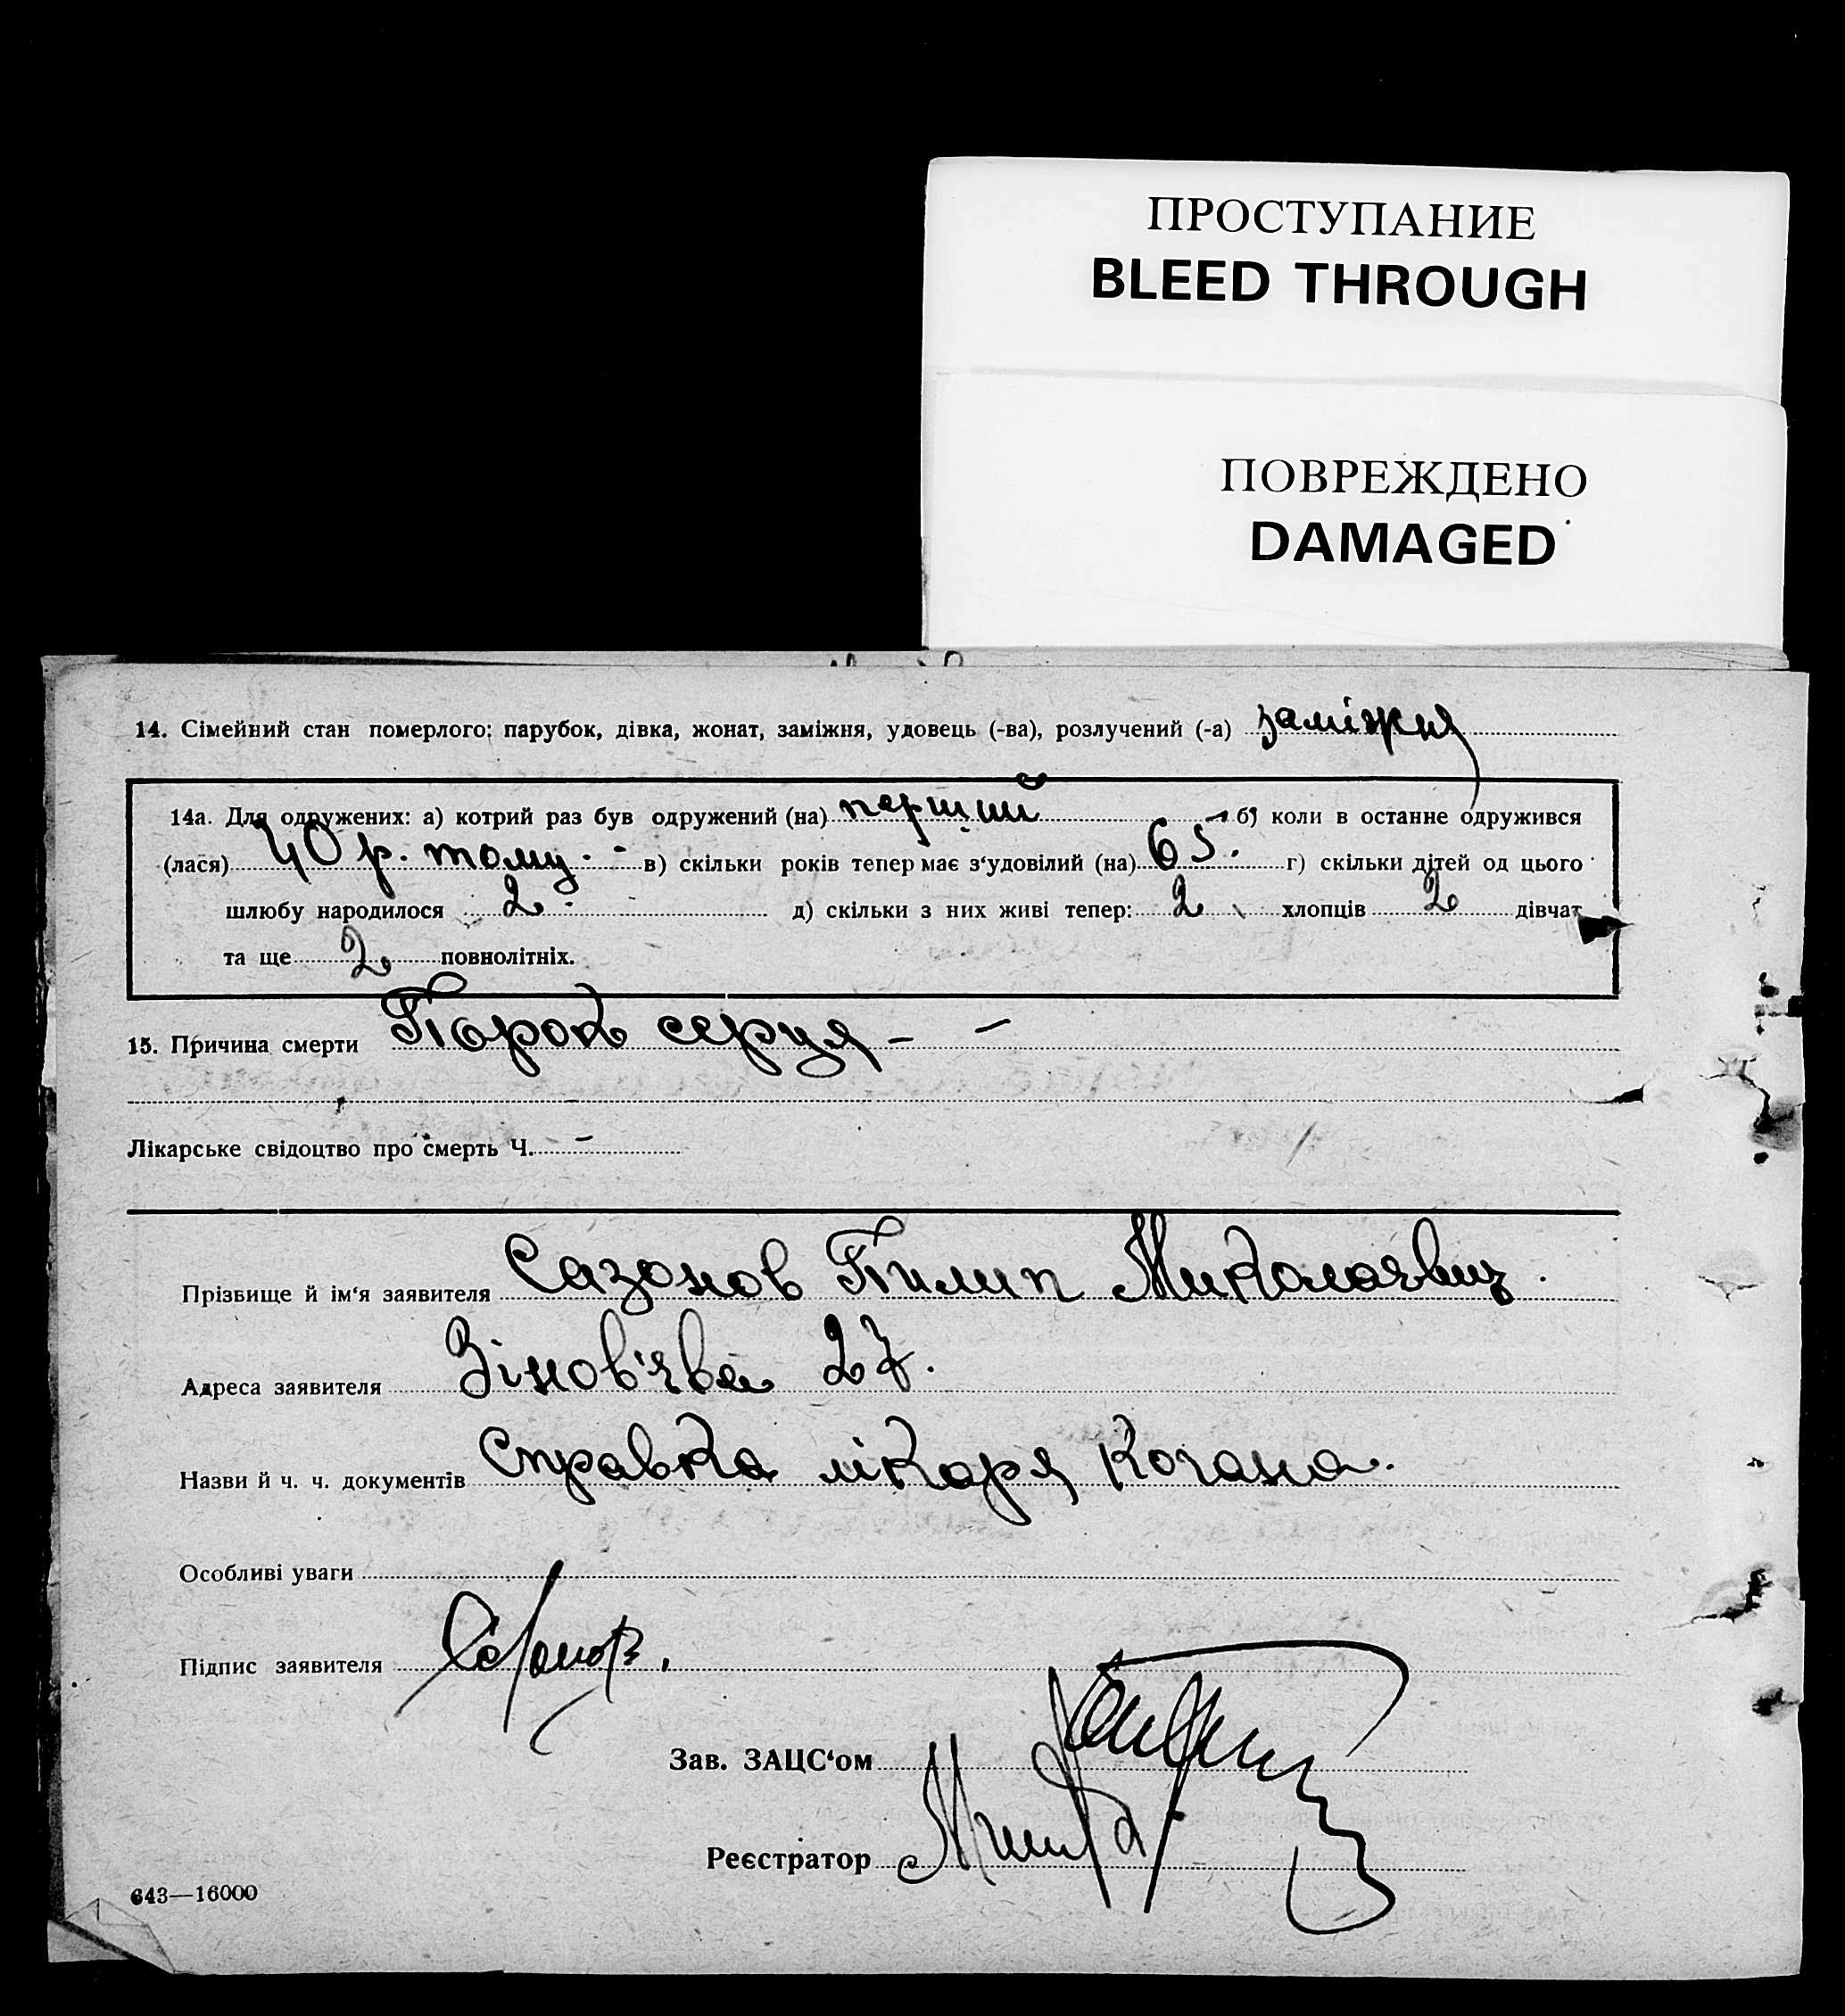 ПРОСТУПАНИЕ
BLEED THROUGH
ПОВРЕЖДЕНО
DAMAGED
14. Сімейний стан померлого: парубок, дівка, жонат, заміжня, удовець (-ва), розлучений (-а) заміжня
14а. Для одружених: а) котрий раз був одружений (на) перший б) коли в останне одружився
(лася) 40 р. тому. - в) скільки років тепер має з'удовілий (на) 65. г) скільки дітей од цього
шлюбу народилося 2. д) скільки з них живі тепер: 2 хлопців 2 дівчат
та ще 2 повнолітніх.
15. Причина смерти Порок серця -
Лікарське свідоцтво про смерть Ч. -
Прізвище й ім'я заявителя Сазонов Пилип Миколаєвич.
Адреса заявителя Зінов'єва 27.
Назви й ч. ч. документів Справка лікаря Когана.
Особливі уваги
Підпис заявителя Сазонов.
Зав. ЗАЦС'ом
Реєстратор
643—16000